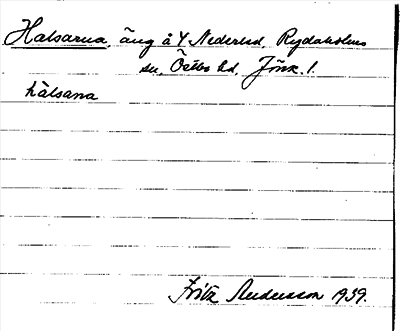 Halsarna, äng å Y. Nederled, Rydaholms
sn, Östbo hd, Jönk. l.
hàlsana
Fritz Andersson 1939.